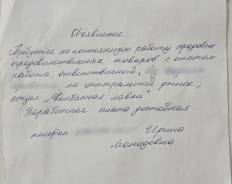 Объявление
Требуется на постоянную работу продавец
продовольственных товаров с опытом
работы, ответственный,
на центральный рынок,
отдел „Колбасная лавка"
Заработная плата достойная
телефон: Ирина